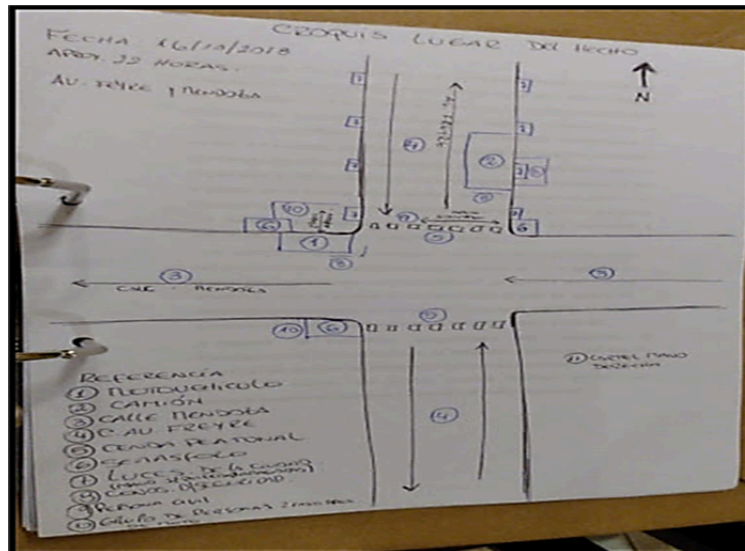 CROQUIS LUGAR DEL HECHO
FECHA: 16/10/2018
APROX. 22 HORAS.
AV. FREYRE y MENDOZA
N
AV. FREYRE
CALLE MENDOZA
11 CARTEL MANO DERECHA
REFERENCIA
1 MOTOVEHICULO
2 CAMIÓN
3 CALLE MENDOZA
4 AV. FREYRE
5 CENDA PEATONAL
6 SEMAFOLO
7 LUCES DE LA CIUDAD
8 CONOS D/SEGURIDAD
9 PERSONA CIVIL
10 GRUPO DE PERSONAS